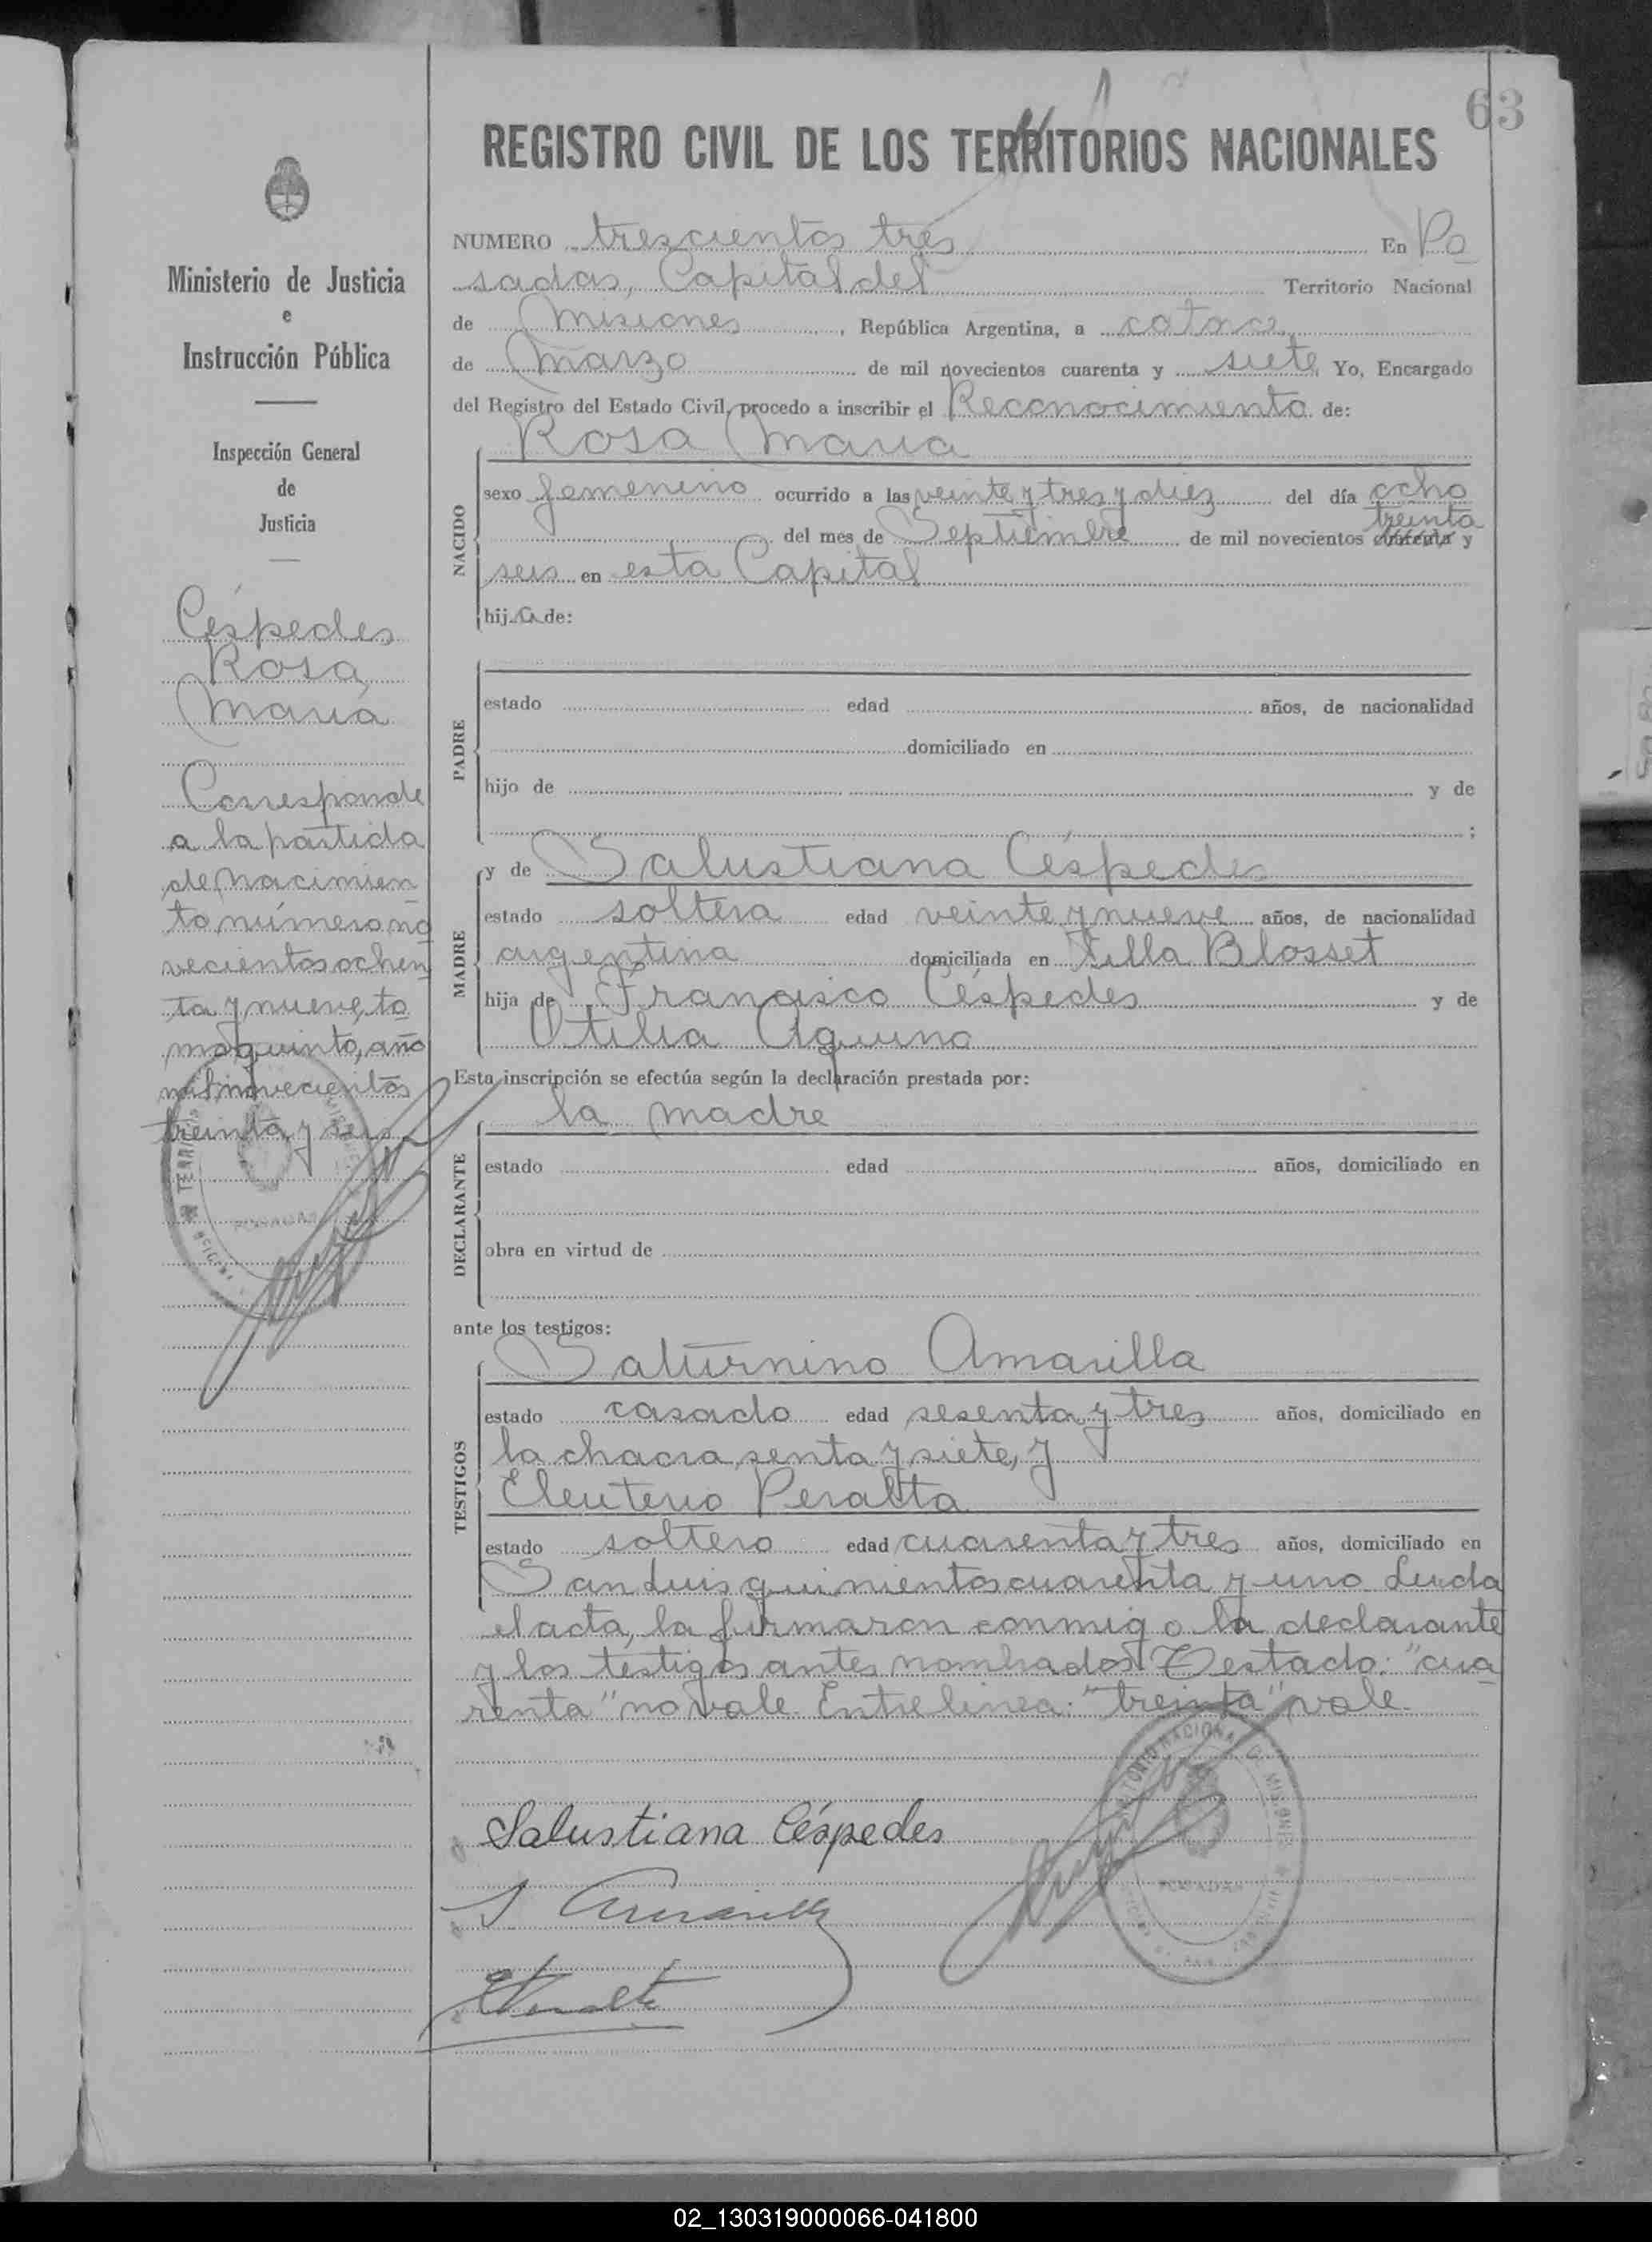 63
REGISTRO CIVIL DE LOS TERRITORIOS NACIONALES
Ministerio de Justicia
e
Instrucción Pública
Inspección General
de
Justicia
Céspedes
Rosa
María
Corresponde
a la partida
de nacimien
to número no
vecientos ochen
ta y nueve, to
mo quinto, año
mil novecientos
treinta y seis
NUMERO trescientos tres En Po
sadas, Capital del Territorio Nacional
de Misiones, República Argentina, a catorce
de Marzo de mil novecientos cuarenta y siete Yo, Encargado
del Registro del Estado Civil, procedo a inscribir el Reconocimiento de:
Rosa María
NACIDO
sexo femenino ocurrido a las veinte y tres y diez del día ocho
treinta
del mes de Septiembre de mil novecientos cuarenta y
seis en esta Capital
hija de:
PADRE
estado edad años, de nacionalidad
domiciliado en
hijo de y de
;
y de Salustiana Céspedes
MADRE
estado soltera edad veinte y nueve años, de nacionalidad
argentina domiciliada en Villa Blosset
hija de Francisco Céspedes y de
Otilia Aquino
Esta inscripción se efectúa según la declaración prestada por:
la madre
DECLARANTE
estado edad años, domiciliado en
obra en virtud de
ante los testigos:
Saturnino Amarilla
TESTIGOS
estado casado edad sesenta y tres años, domiciliado en
la chacra senta y siete, y
Eleuterio Peralta
estado soltero edad cuarenta y tres años, domiciliado en
San Luis quinientos cuarenta y uno Leida
el acta, la firmaron conmigo la declarante
y los testigos antes nombrados. Testado: "cua
renta" no vale. Entre linea: "treinta" vale.
Salustiana Céspedes
S Amarilla
EPeralta
POSADAS
02_130319000066-041800